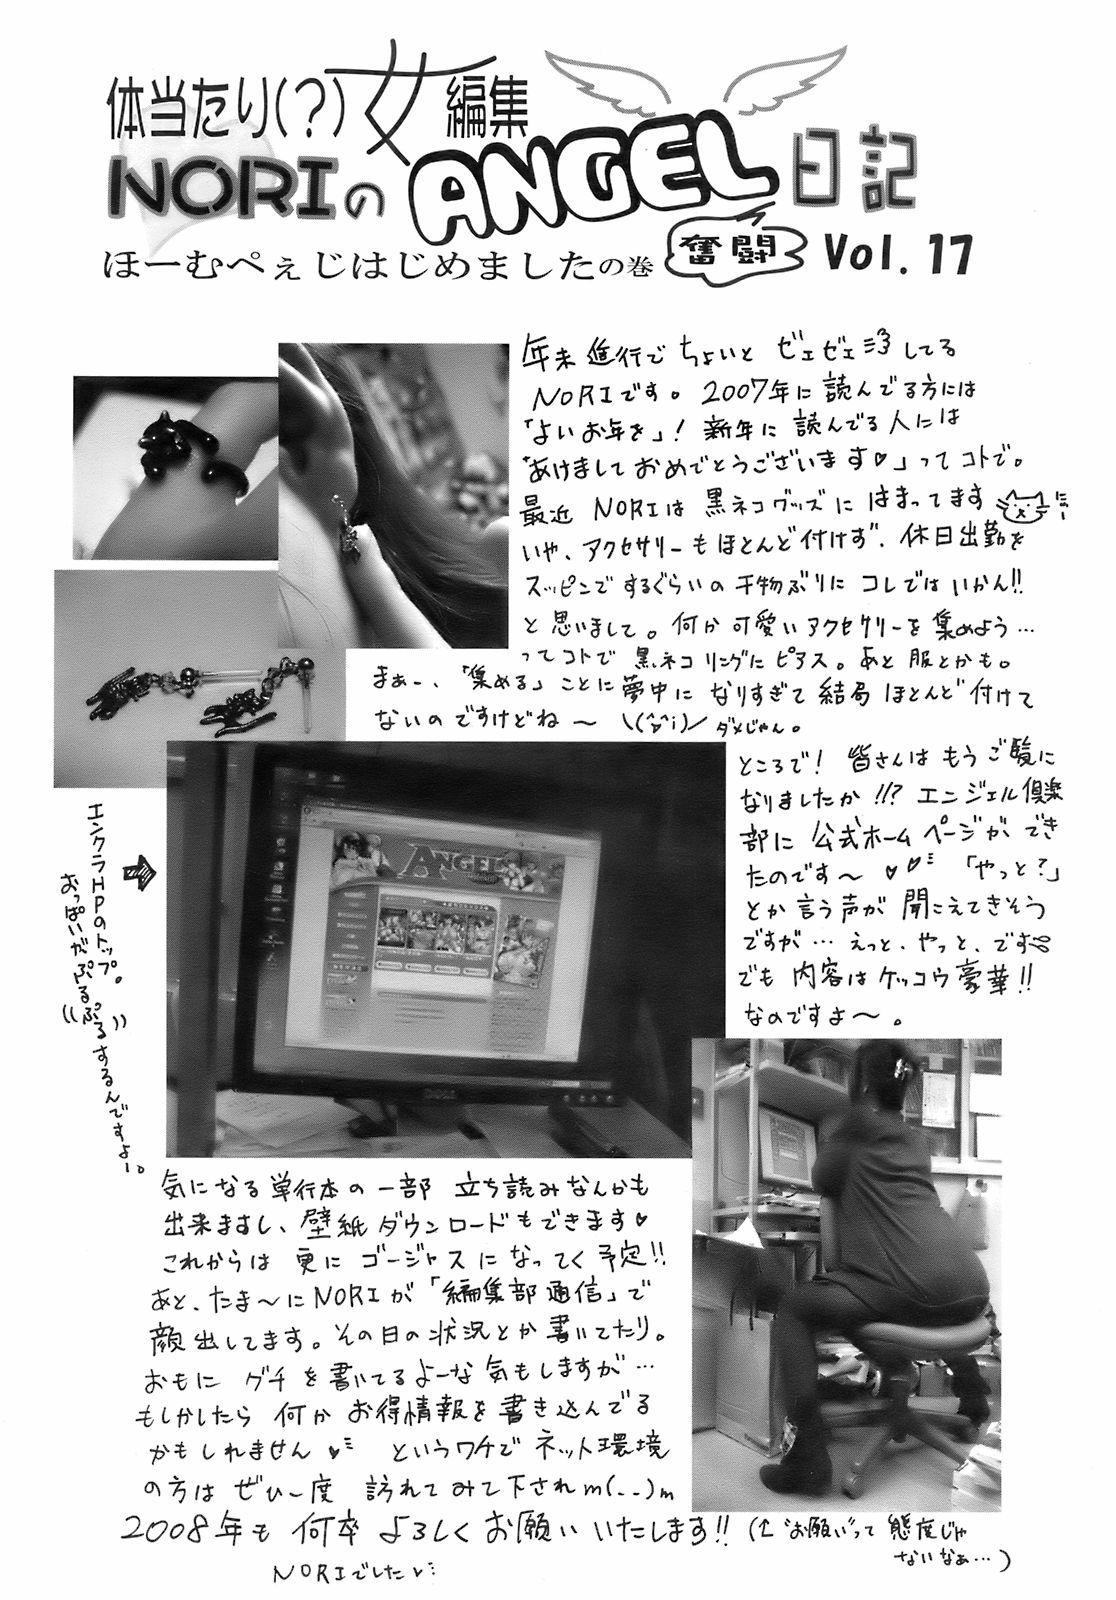 体当たり(?)女編集
NORIのANGEL日記
奮闘
ほーむぺぇじはじめましたの巻
Vol. 17
年末進行でちょいとゼェゼェしてる
NORIです。2007年に読んでる方には
「よいお年を」! 新年に読んでる人には
「あけましておめでとうございます♥」ってコトで。
最近 NORIは黒ネコグッズにはまってます
にゃー
いや、アクセサリーもほとんど付けず、休日出勤を
スッピンでするぐらいの干物ぶりにコレではいかん!!
と思いまして。何か可愛いアクセサリーを集めよう…
ってコトで黒ネコリングにピアス。あと服とかも。
まぁー、「集める」ことに夢中になりすぎて結局ほとんど付けて
ないのですけどね〜 \(^^i)/ ダメじゃん。
ところで! 皆さんはもうご覧に
なりましたか!!? エンジェル倶楽
部に公式ホームページができ
たのです〜 ♥♥ 「やっと?」
とか言う声が聞こえてきそう
ですが… えっと、やっと、です
でも内容はケッコウ豪華!!
なのですよ〜。
エンクラHPのトップ。
おっぱいがぷるっぷるするんですよー。
ANGEL
気になる単行本の一部 立ち読みなんかも
出来ますし、壁紙ダウンロードもできます♥
これからは更にゴージャスになってく予定!!
あと、たま〜にNORIが「編集部通信」で
顔出してます。その日の状況とか書いてたり。
おもにグチを書いてるよーな気もしますが…
もしかしたら何かお得情報を書き込んでる
かもしれません♥ というワケでネット環境
の方はぜひ一度 訪れてみて下されm(..)m
2008年も何卒よろしくお願いいたします!! (↑"お願い"って態度じゃ
ないなぁ…)
NORIでした♥